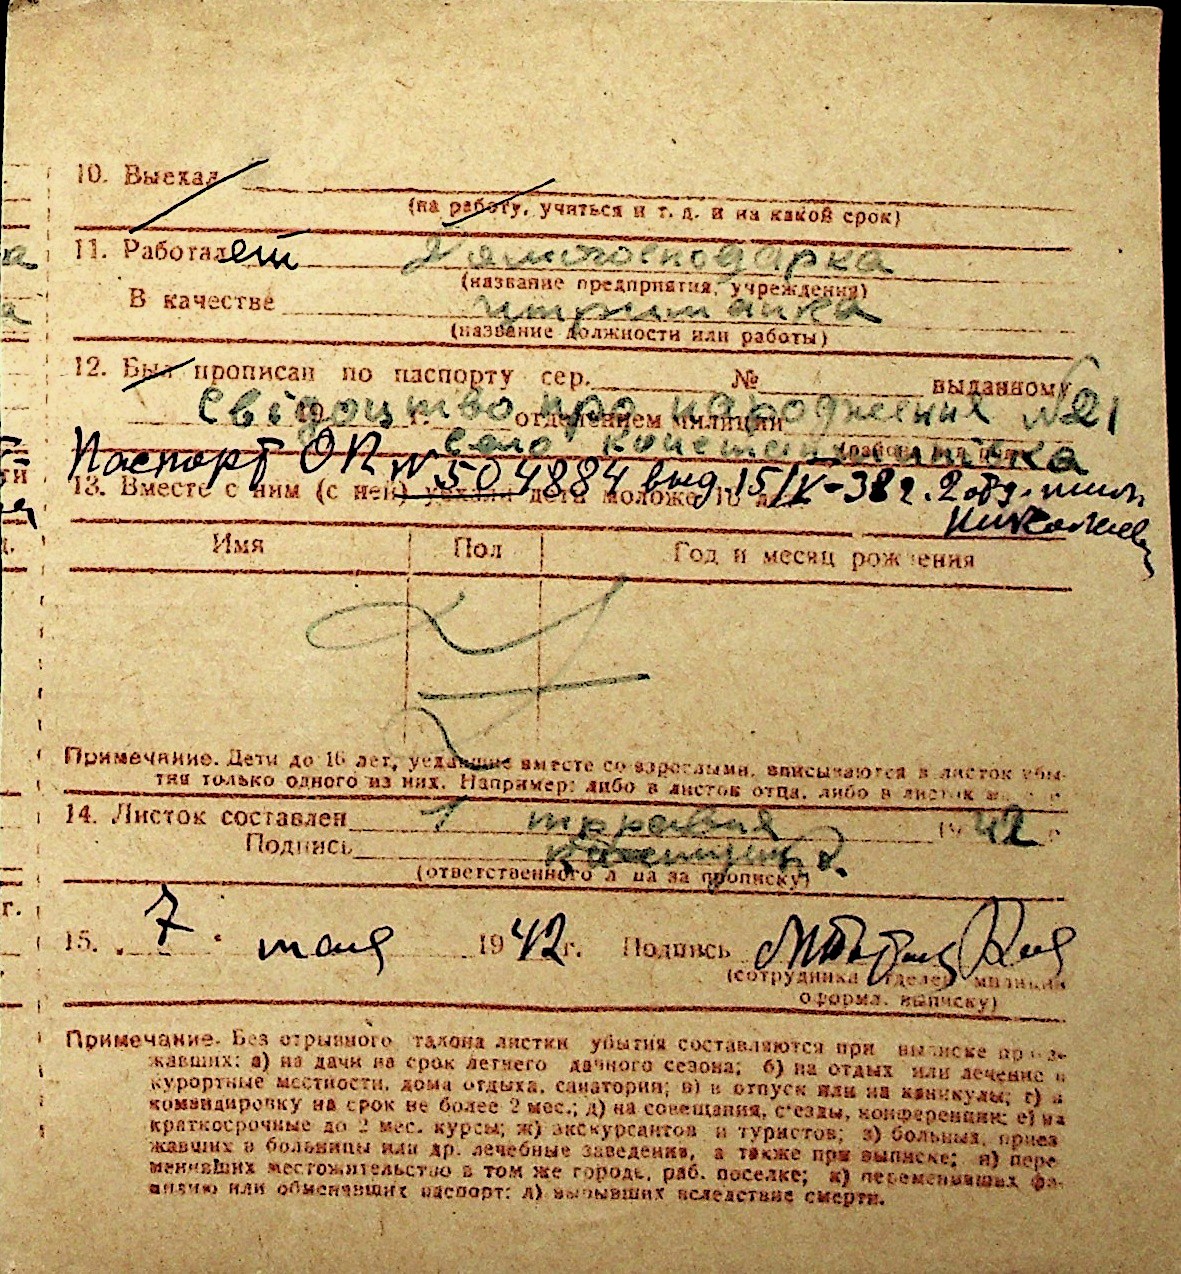 10. Выехал
(на работу, учиться и т. д. и на какой срок)
11. Работает Домогосподарка
(название предприятия, учреждения)
В качестве утриманка
(название должности или работы)
12. Был прописан по паспорту сер. № выданному
Свідоцтво про народження №21
г. отделением милиции
село Константинівка
Паспорт ОК № 504884 выд. 15/IX-38 г. 2 отд. мил.
Николаев
13. Вместе с ним (с ней) уехали дети моложе 16 лет
Имя Пол Год и месяц рождения
Примечание. Дети до 16 лет, уехавшие вместе со взрослыми, вписываются в листок убы-
тия только одного из них. Например: либо в листок отца, либо в листок
14. Листок составлен 1 травня 1942 г.
Подпись
(ответственного лица за прописку)
15. 7 мая 1942 г. Подпись
(сотрудника отделен. милиции
оформл. выписку)
Примечание. Без отрывного талона листки убытия составляются при выписке приез-
жавших: а) на дачи на срок летнего дачного сезона; б) на отдых или лечение в
курортные местности, дома отдыха, санатории; в) в отпуск или на каникулы; г) в
командировку на срок не более 2 мес.; д) на совещания, с'езды, конференции; е) на
краткосрочные до 2 мес. курсы; ж) экскурсантов и туристов; з) больных, приез
жавших в больницы или др. лечебные заведения, а также при выписке; и) пере
менивших местожительство в том же городе, раб. поселке; к) переменивших фа-
милию или обменявших паспорт; л) выбывших вследствие смерти.